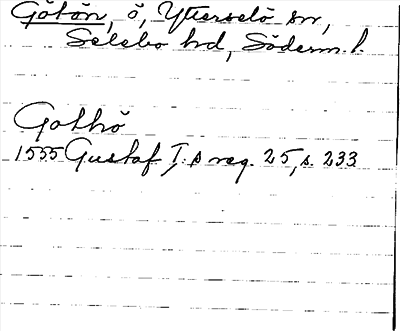 Götön, ö, Ytterselö sn,
Selebo hd, Söderm. l.
Gothö
1555 Gustaf I:s reg. 25, s. 233